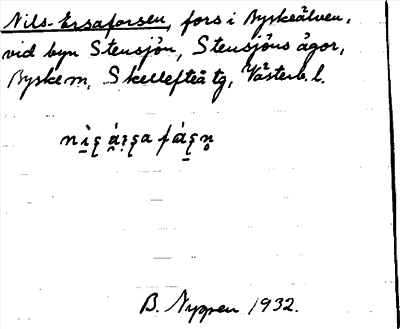 Nils-Ersaforsen, fors i Byskeälven,
vid byn Stensjön, Stensjöns ägor,
Byske sn, Skellefteå tg, Västerb. l.
B. Nygren 1932.